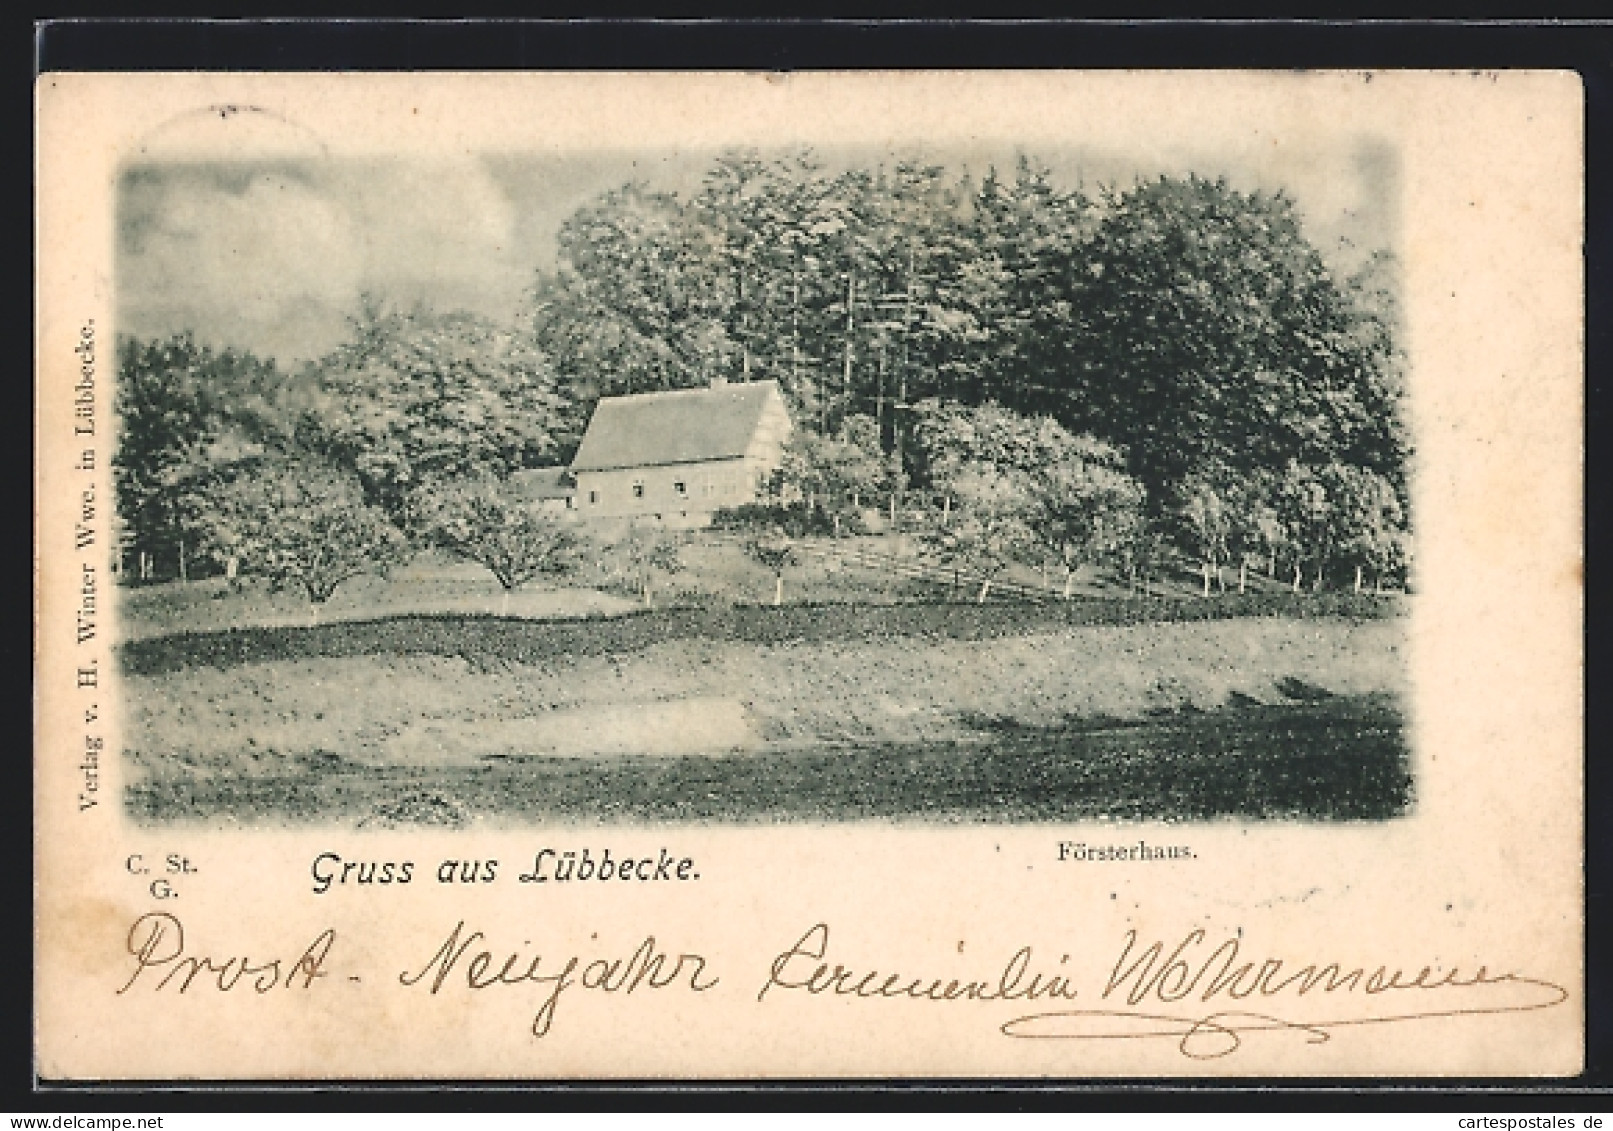 Verlag v. H. Winter Wwe. in Lübbecke.
C. St.
G.
Gruss aus Lübbecke.
Försterhaus.
Prost - Neujahr Wehrmann
cartespostales de